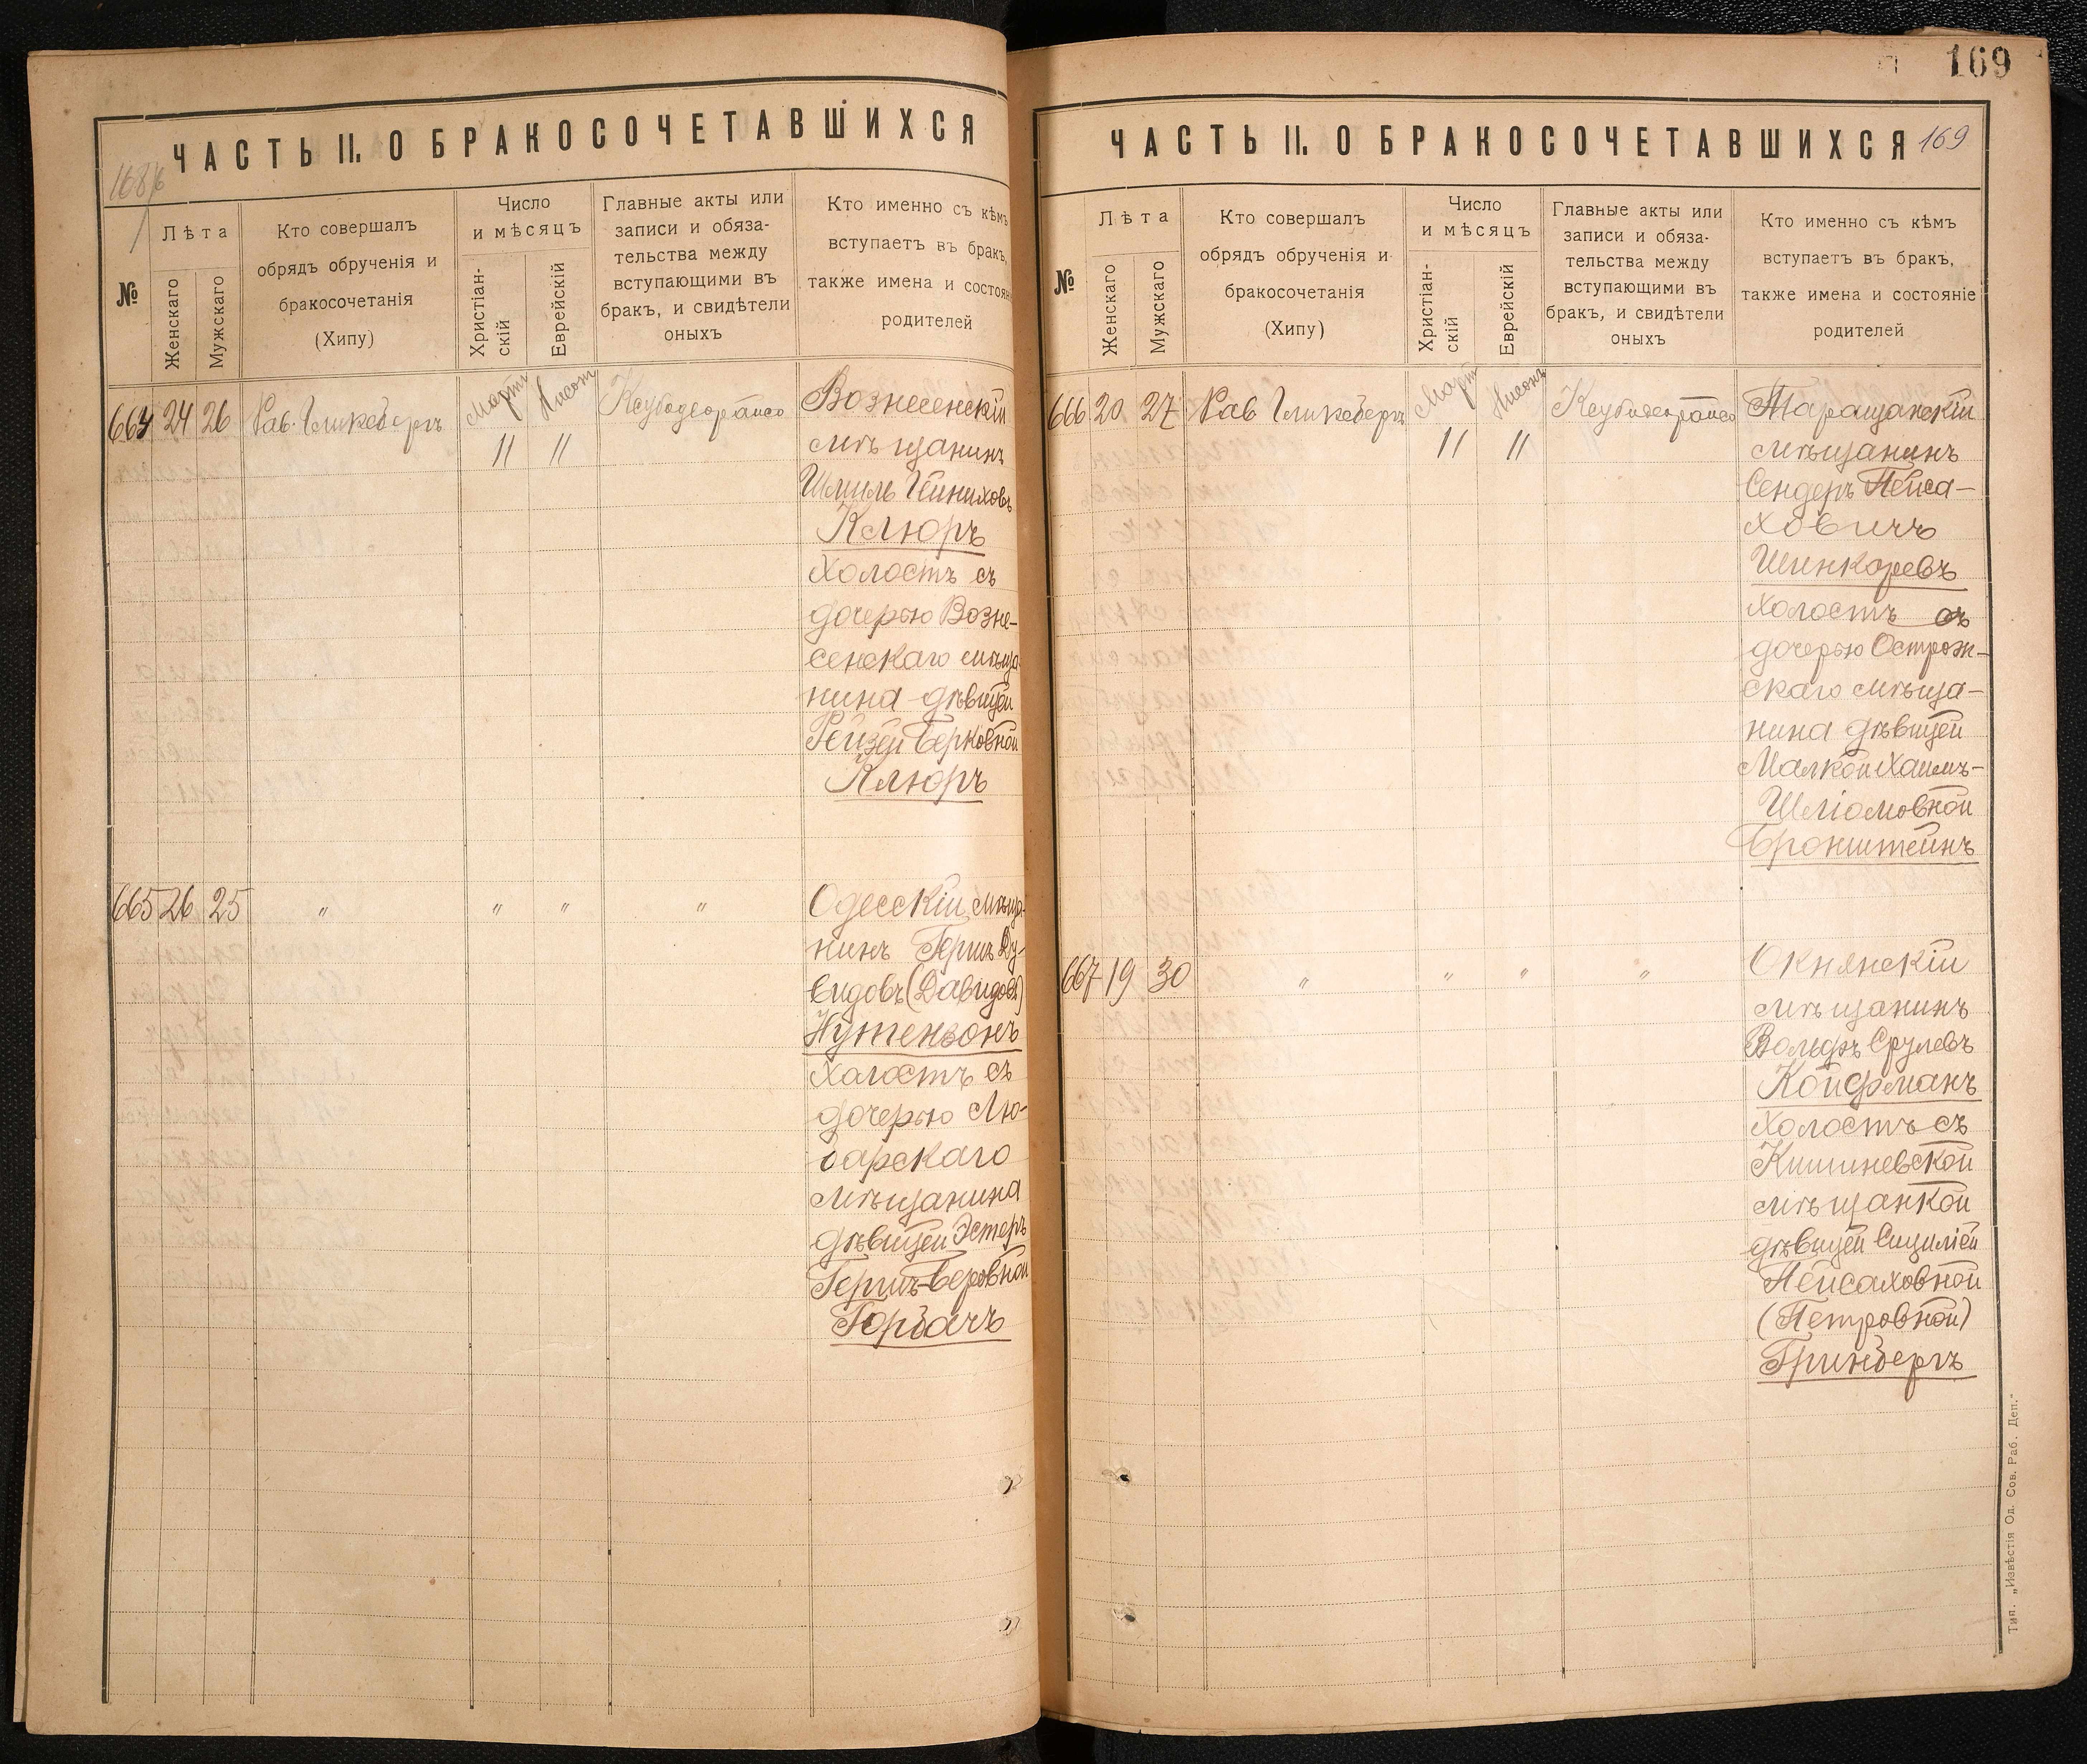 169
ЧАСТЬ II. О БРАКОСОЧЕТАВШИХСЯ
№
Лѣта
Женскаго
Мужскаго
Кто совершалъ
обрядъ обрученія и
бракосочетанія
(Хипу)
Число
и мѣсяцъ
Христіан-
скій
Еврейскій
Главные акты или
записи и обяза-
тельства между
вступающими въ
бракъ, и свидѣтели
оныхъ
Кто именно съ кѣмъ
вступаетъ въ бракъ,
также имена и состояні
родителей
664 24 26 Рав. Гликсбергъ Март Нисон
11 11
Вознесенскій
мѣщанинъ
Шмиль Гейниховъ
Клюръ
Холостъ съ
дочерью Возне-
сенскаго мѣща-
нина дѣвицей
Рейзей Берковной
Клюръ
665 26 25 " " " "
Одесскій мѣща-
нинъ Гершъ Ду-
видовъ (Давидовъ)
Нутензонъ
Холостъ съ
дочерью Лю-
барскаго
мѣщанина
дѣвицей Эстеръ
Гершъ-Беровной
Горбачъ
ЧАСТЬ II. О БРАКОСОЧЕТАВШИХСЯ 169
№
Лѣта
Женскаго
Мужскаго
Кто совершалъ
обрядъ обрученія и
бракосочетанія
(Хипу)
Число
и мѣсяцъ
Христіан-
скій
Еврейскій
Главные акты или
записи и обяза-
тельства между
вступающими въ
бракъ, и свидѣтели
оныхъ
Кто именно съ кѣмъ
вступаетъ въ бракъ,
также имена и состояніе
родителей
666 20 27 Рав Гликсбергъ Март Нисонъ
11 11
Таращанскій
мѣщанинъ
Сендеръ Пейса-
ховичъ
Шинкаревъ
Холостъ съ
дочерью Острож-
скаго мѣща-
нина дѣвицей
Малкой Хаимъ-
Шліомовной
Бронштейнъ
667 19 30 " " " "
Окнянскій
мѣщанинъ
Вольфъ Срулевъ
Койфманъ
Холостъ съ
Кишиневской
мѣщанкой
дѣвицей Сицилией
Пейсаховной
(Петровной)
Гринбергъ
Тип. „Извѣстія Од. Сов. Раб. Деп."